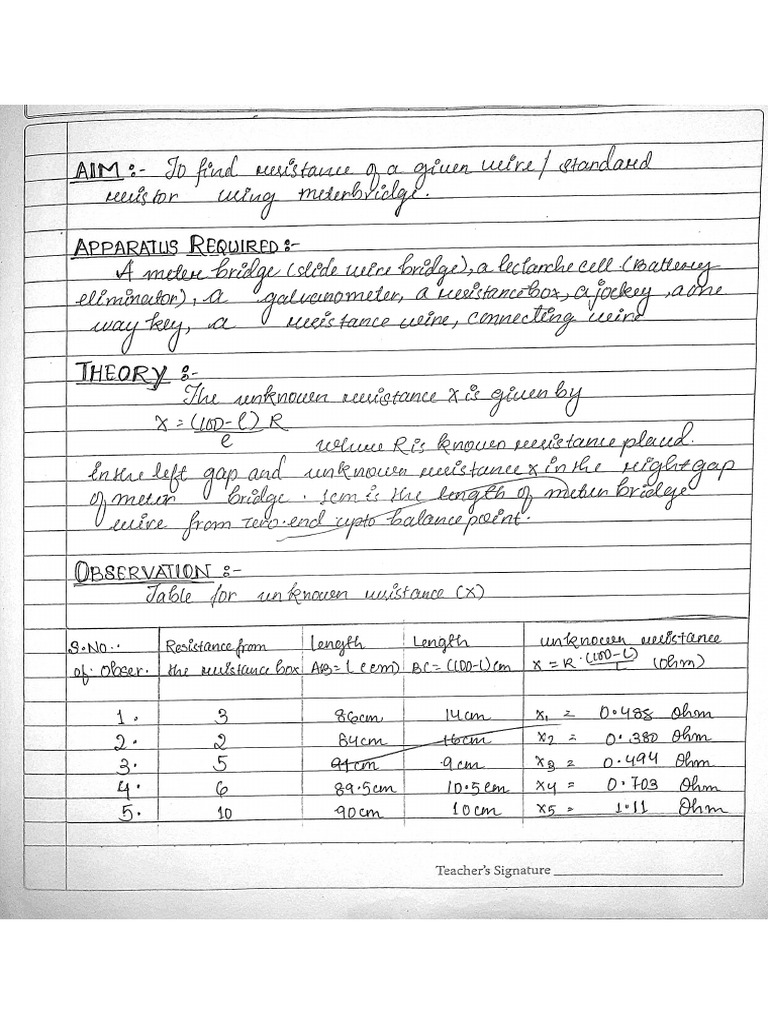 AIM :- To find resistance of a given wire / standard
resistor using meterbridge.
APPARATUS REQUIRED :-
A meter bridge (slide wire bridge), a leclanche cell (Battery
eliminator), a galvanometer, a resistance box, a jockey, a one
way key, a resistance wire, connecting wire
THEORY :-
The unknown resistance X is given by
X = (100-l) R
e
where R is known resistance placed.
In the left gap and unknown resistance X in the right gap
of meter bridge. 1cm is the length of meter bridge
wire from zero-end upto balance point.
OBSERVATION :-
Table for unknown resistance (X)
S.NO.. Resistance from Length Length unknown resistance
of. Obser. the resistance box AB = l (cm) BC = (100-l) cm X = R. (100-l)/l (ohm)
1. 3 86cm 14cm X1 = 0.488 Ohm
2. 2 84cm 16cm X2 = 0.380 Ohm
3. 5 91cm 9cm X3 = 0.494 Ohm
4. 6 89.5cm 10.5cm X4 = 0.703 Ohm
5. 10 90cm 10cm X5 = 1.11 Ohm
Teacher's Signature